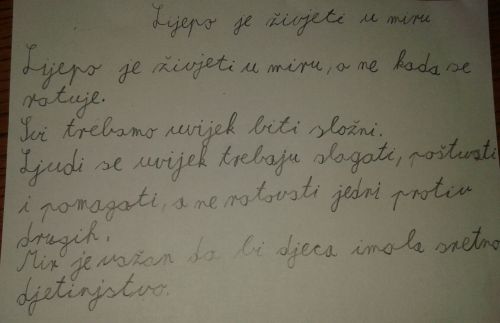 Lijepo je živjeti u miru
Lijepo je živjeti u miru, a ne kada se
ratuje.
Svi trebamo uvijek biti složni.
Ljudi se uvijek trebaju slagati, poštivati
i pomagati, a ne ratovati jedni protiv
drugih.
Mir je važan da bi djeca imala sretno
djetinjstvo.